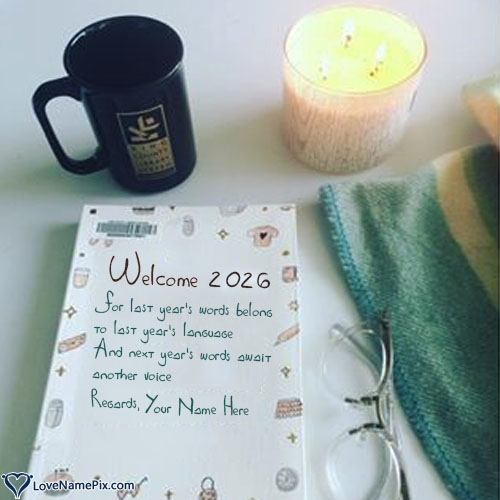 KING
COUNTY
LIBRARY
SYSTEM
Welcome 2026
For last year's words belong
to last year's language
And next year's words await
another voice
Regards, Your Name Here
LoveNamePix.com